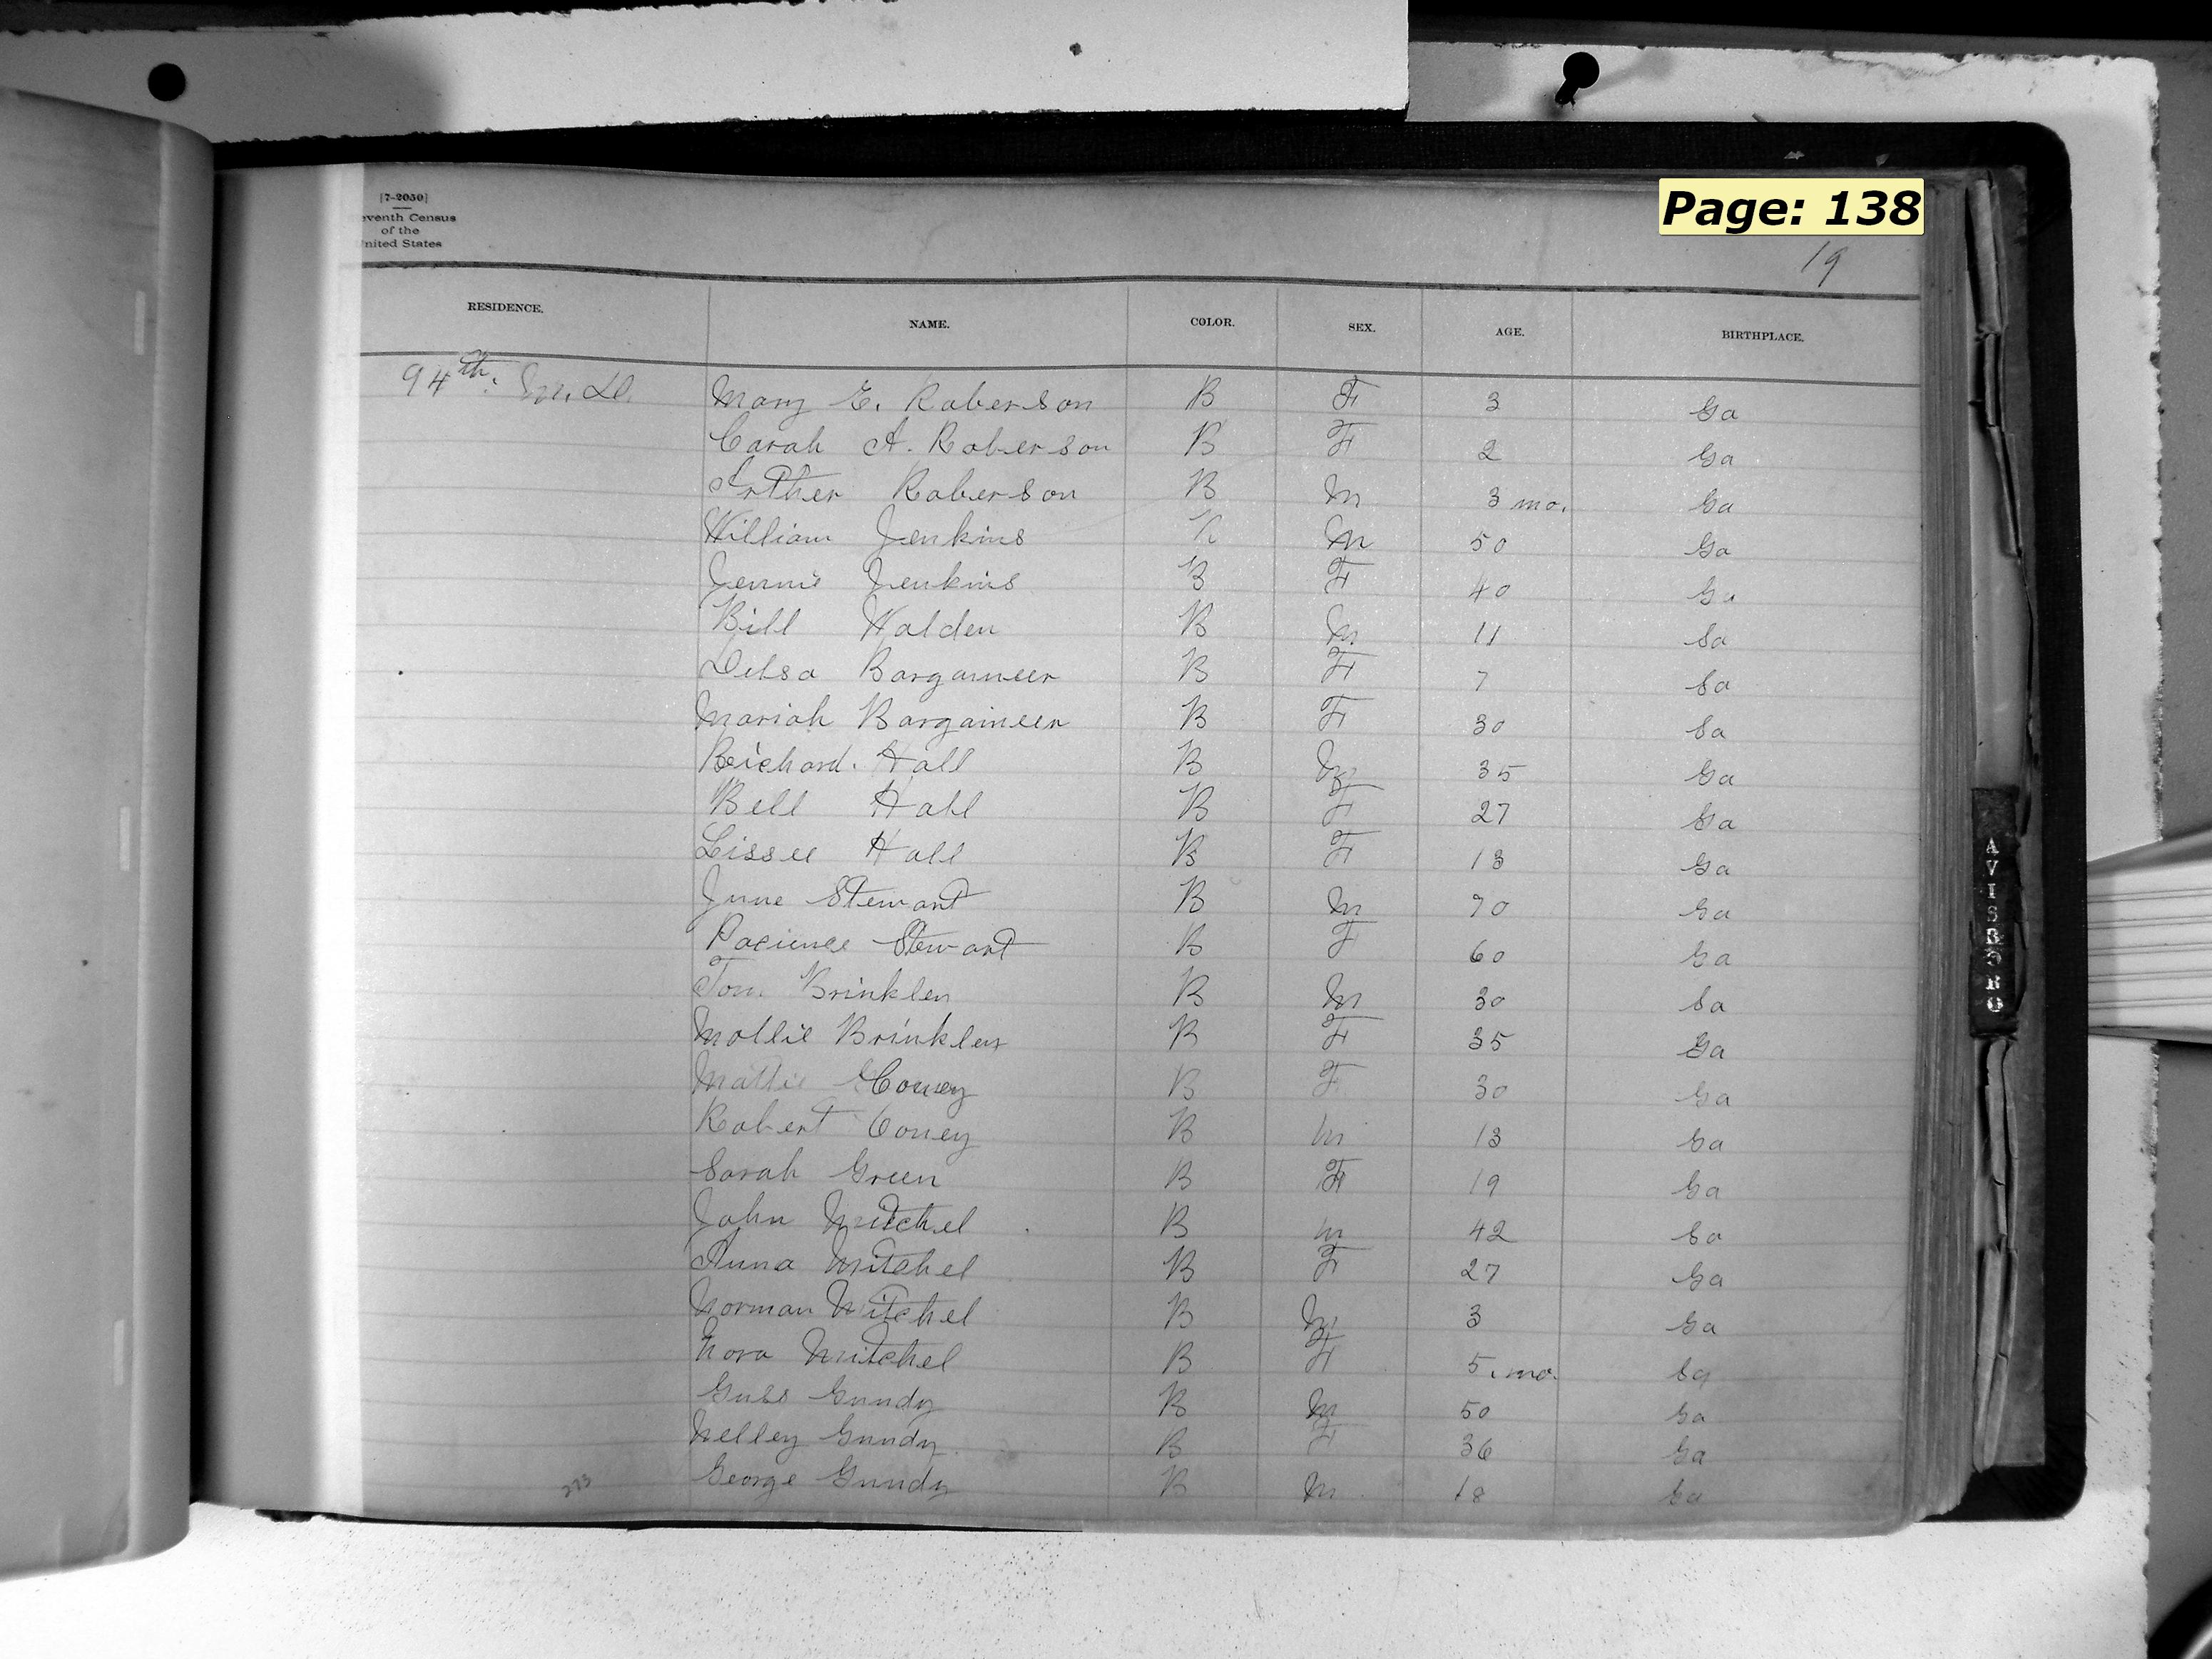 Page: 138
[7-2050]
eventh Census
of the
nited States
19
RESIDENCE. NAME. COLOR. SEX. AGE. BIRTHPLACE.
94th. M. D. Mary E. Roberson B F 3 Ga
Carah A. Roberson B F 2 Ga
Roberson B M 3 mo. Ga
William Jenkins B M 50 Ga
Jennie Jenkins B F 40 Ga
Bill Walden B M 11 Ga
Delsa Bargaineer B F 7 Ga
Mariah Bargaineer B F 30 Ga
Reichard. Hall B M 35 Ga
Bell Hall B F 27 Ga
Lissee Hall B F 13 Ga
June Stewart B M 70 Ga
Pacience Stewart B F 60 Ga
Tom Brinkley B M 30 Ga
Mollie Brinkley B F 35 Ga
Mattie Coney B F 30 Ga
Robert Coney B M 13 Ga
Sarah Green B F 19 Ga
John Mitchel B M 42 Ga
Anna Mitchel B F 27 Ga
Norman Mitchel B M 3 Ga
Nora Mitchel B F 5. mo. Ga
Guss Gundy B M 50 Ga
Nelley Gundy B F 36 Ga
273 George Gundy B M 18 Ga
AVISBORO